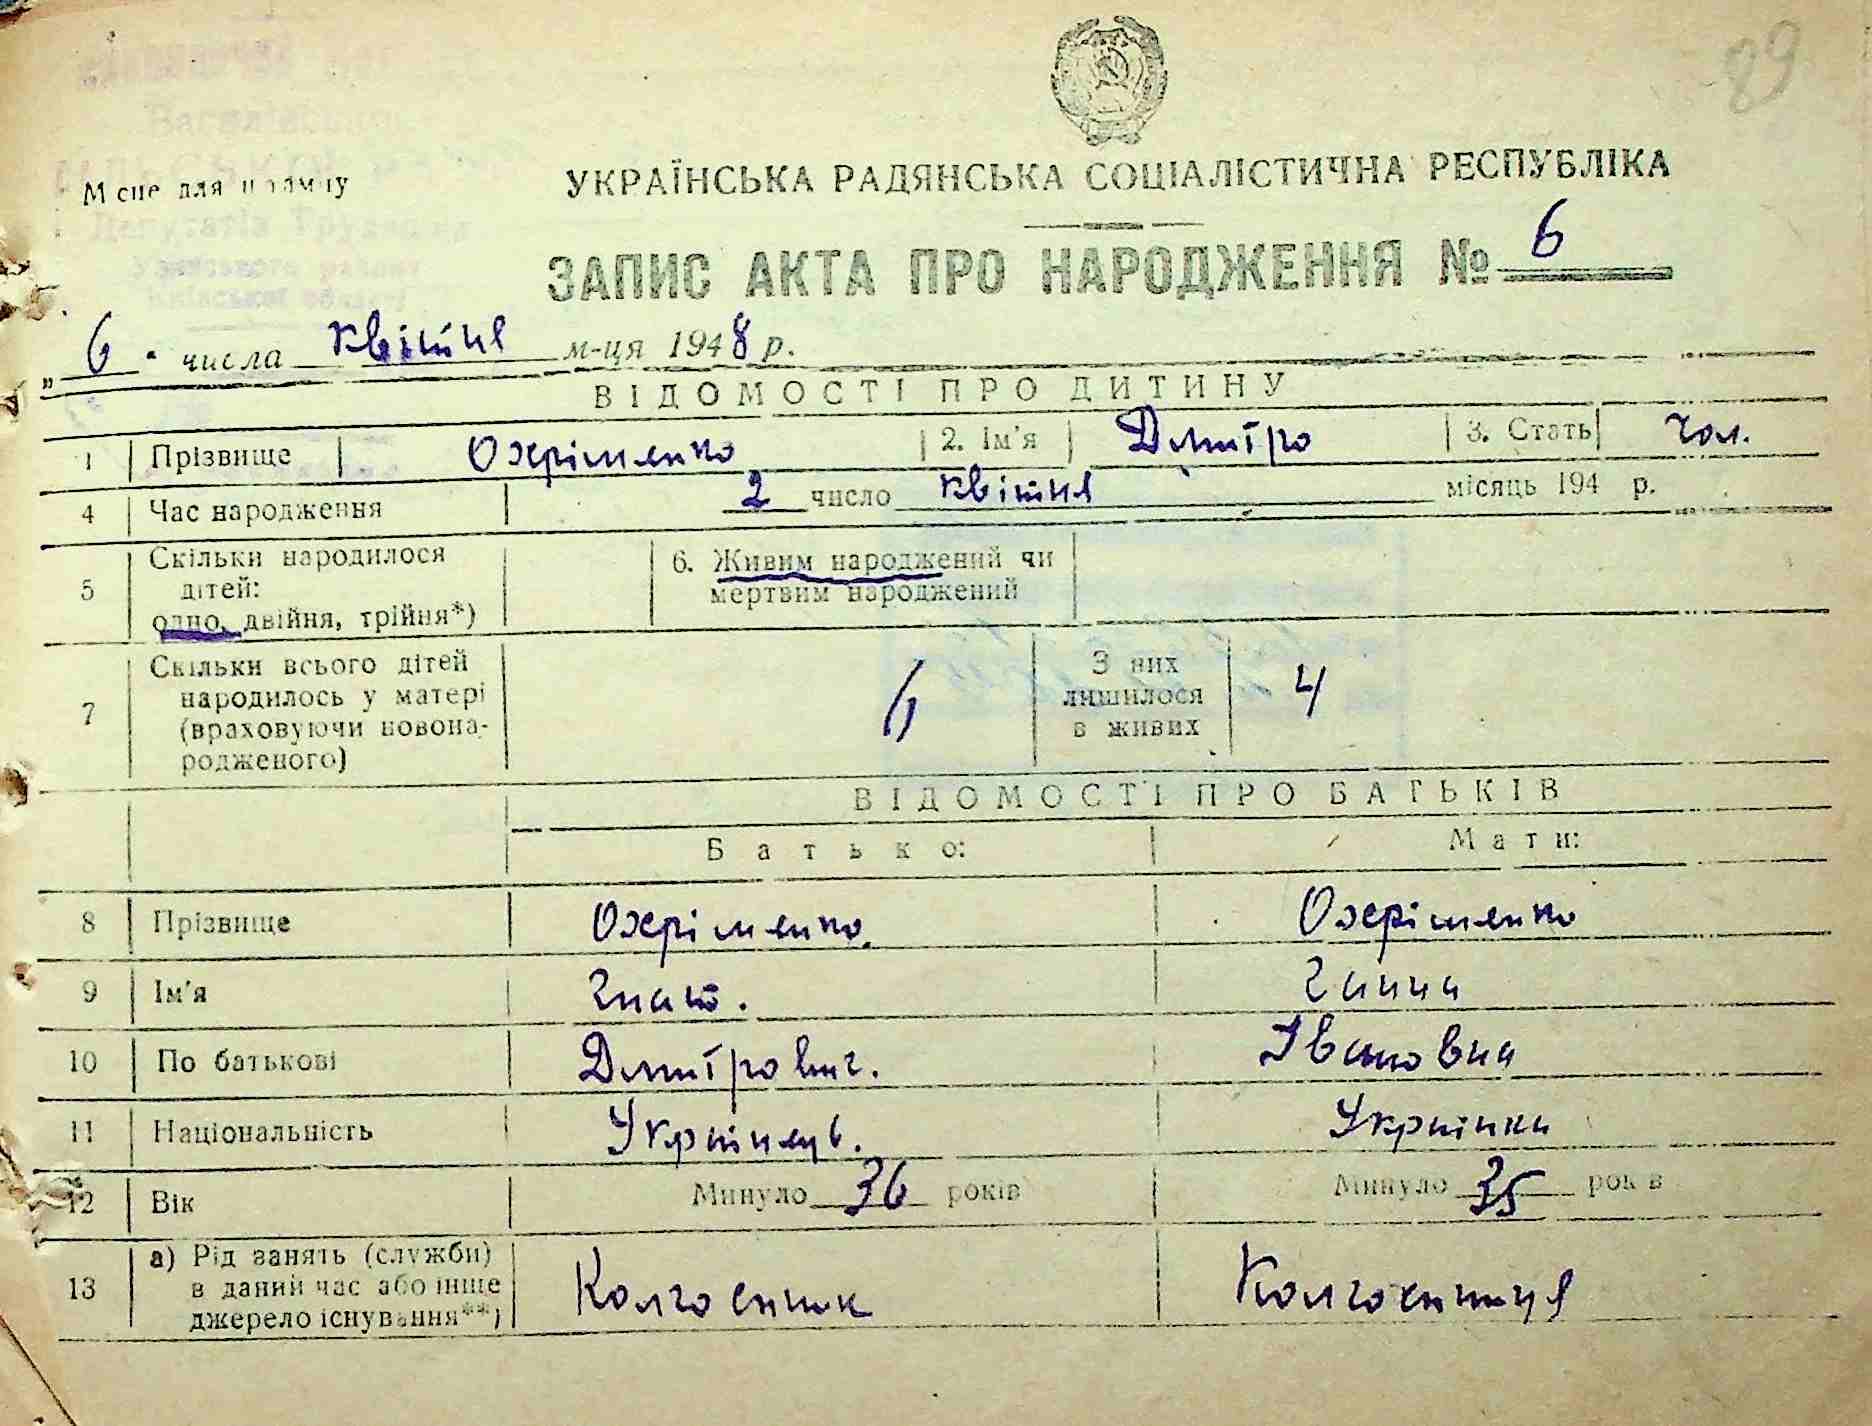 89
Місце для штампу
Депутатів Трудящих
Узинського району
Київської області
УКРАЇНСЬКА РАДЯНСЬКА СОЦІАЛІСТИЧНА РЕСПУБЛІКА
ЗАПИС АКТА ПРО НАРОДЖЕННЯ № 6
„ 6 " числа квітня м-ця 1948 р.
ВІДОМОСТІ ПРО ДИТИНУ
1 Прізвище Охріменко 2. Ім'я Дмитро 3. Стать чол.
4 Час народження 2 число квітня місяць 194 р.
5 Скільки народилося дітей: одно, двійня, трійня*) 6. Живим народжений чи мертвим народжений
7 Скільки всього дітей народилось у матері (враховуючи новонародженого) 6 З них лишилося в живих 4
ВІДОМОСТІ ПРО БАТЬКІВ
Батько: Мати:
8 Прізвище Охріменко Охріменко
9 Ім'я Гнат. Ганна
10 По батькові Дмитрович. Івановна
11 Національність Українець. Українка
12 Вік Минуло 36 років Минуло 35 років
13 а) Рід занять (служби) в даний час або інше джерело існування**) Колгоспник Колгоспниця